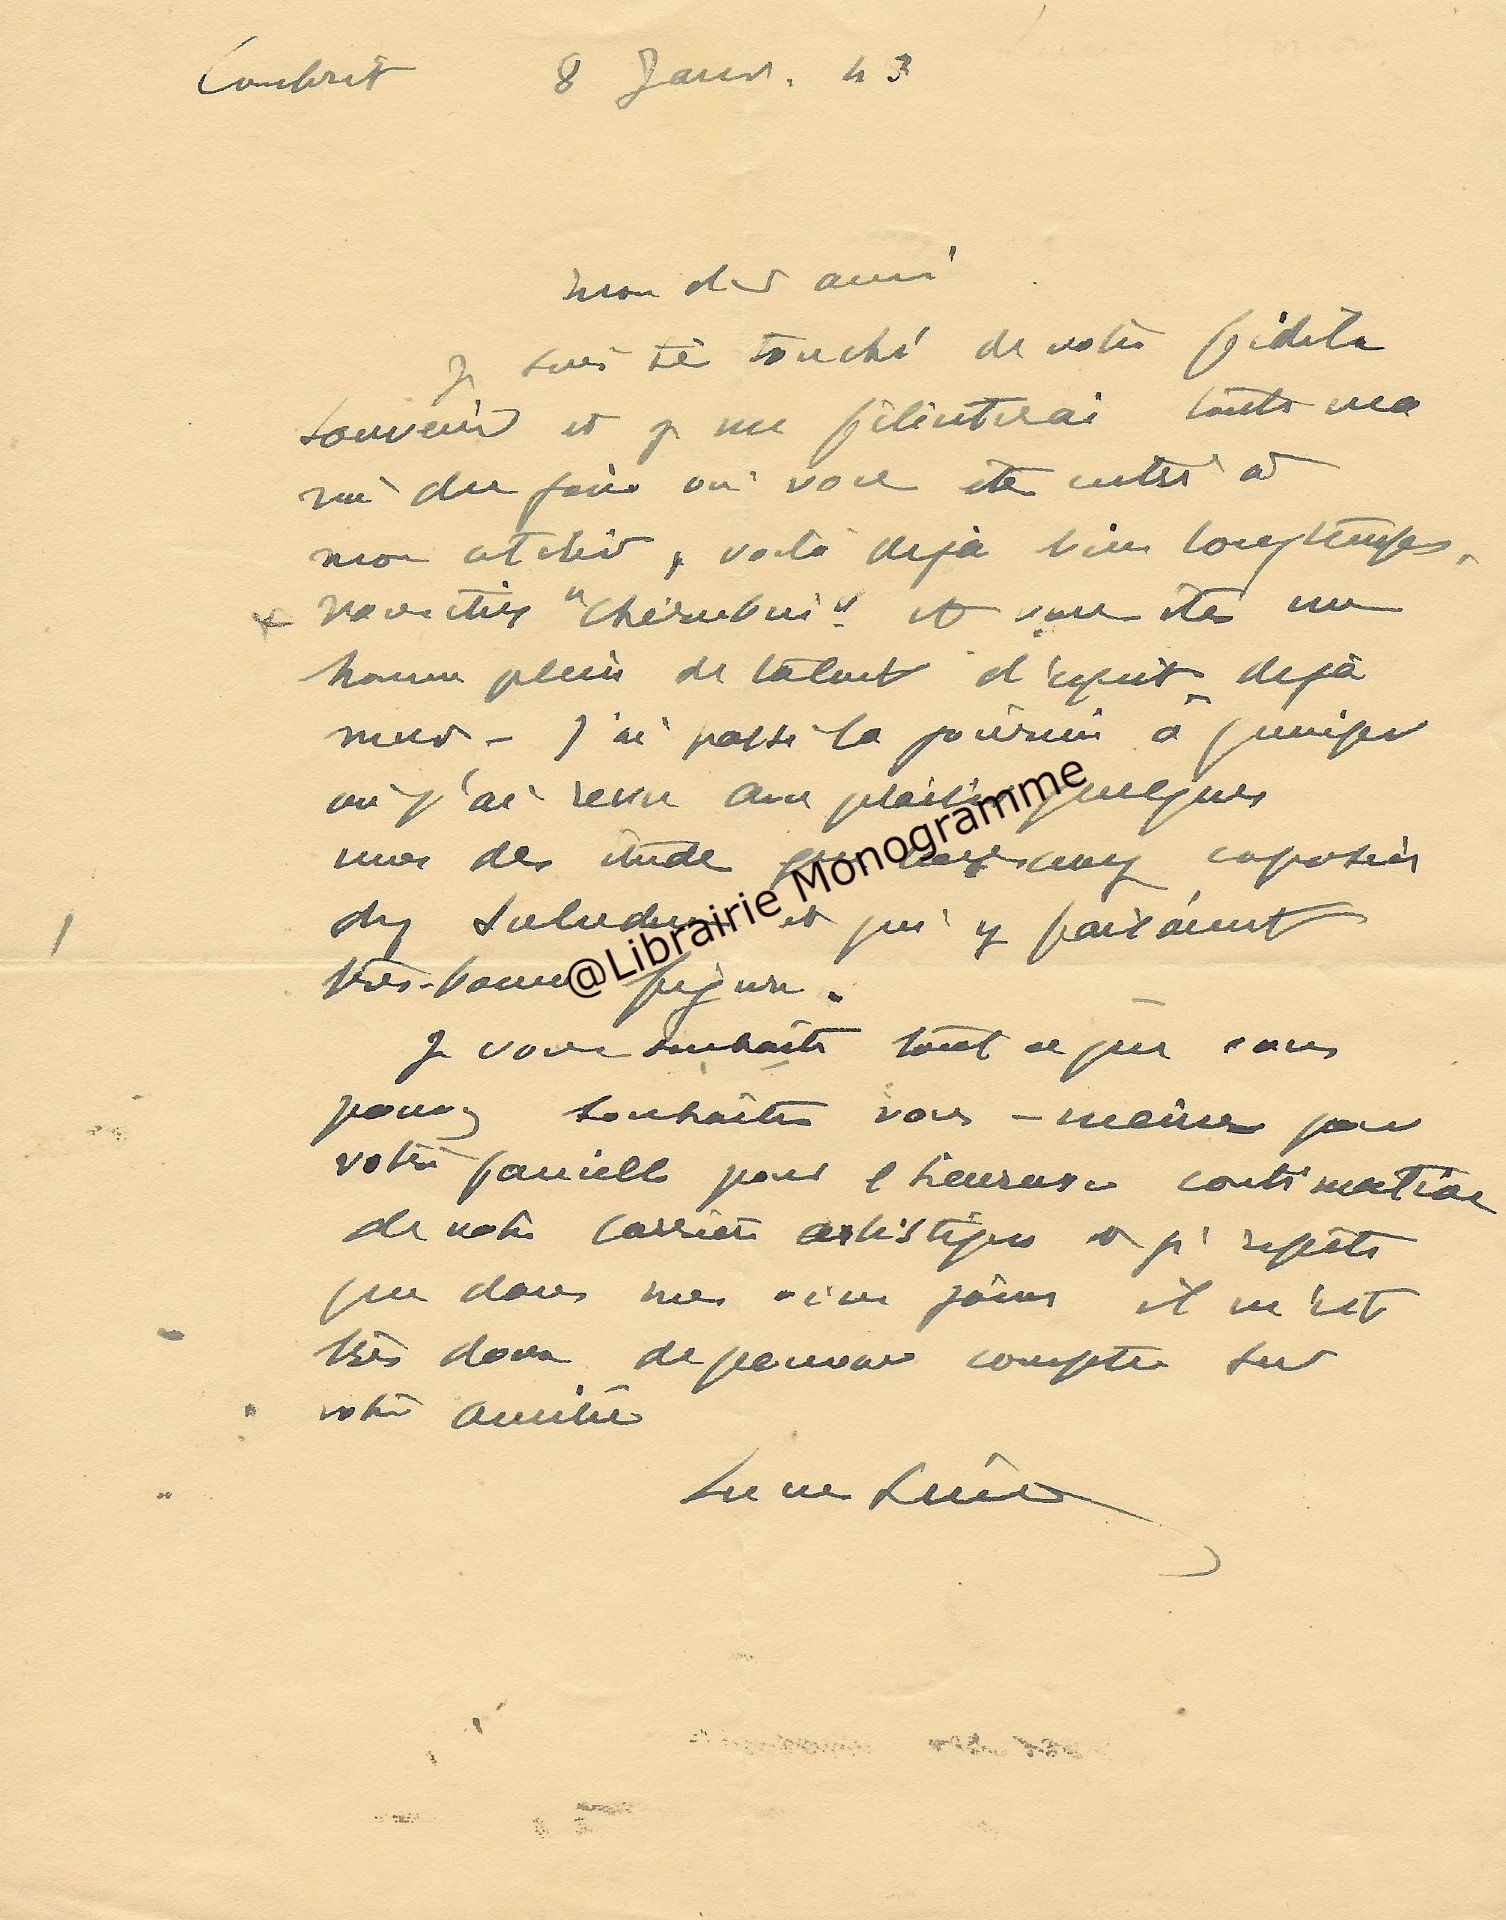 Combrit 8 Janv. 43
Mon cher ami
Je suis très touché de votre fidèle
souvenir et je me féliciterai toute ma
vie du jour où vous êtes entré à
mon atelier, voilà déjà bien longtemps.
Vous étiez "Chérubin" et vous êtes un
homme plein de talent d'esprit déjà
mûr – J'ai passé la journée à Quimper
où j'ai revu avec plaisir quelques
unes des études que vous avez exposées
chez Saluden et qui y faisaient
très bonne figure.
Je vous souhaite tout ce que vous
pouvez souhaiter vous-même pour
votre famille pour l'heureuse continuation
de votre carrière artistique et je répète
que dans mes vieux jours il m'est
très doux de pouvoir compter sur
votre amitié
Lucien Simon
@Librairie Monogramme